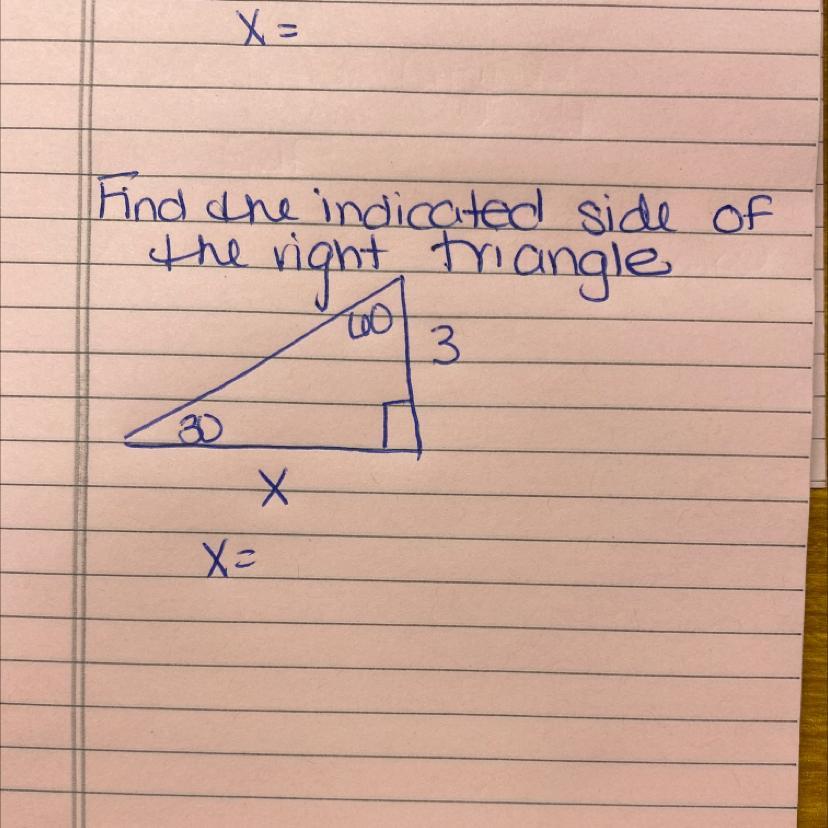 X =
Find the indicated side of
the right triangle
60
3
30
X
X =